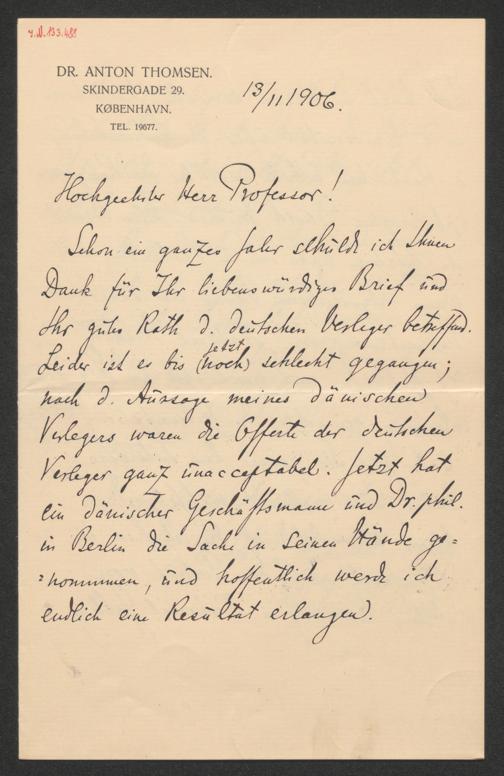 I.N. 133.488
DR. ANTON THOMSEN.
SKINDERGADE 29.
KØBENHAVN.
TEL. 19677.
13/11 1906.
Hochgeehrter Herr Professor!
Schon ein ganzes Jahr schulde ich Ihnen
Dank für Ihr liebenswürdiges Brief und
Ihr gutes Rath d. deutschen Verleger betreffend.
Leider ist es bis (noch) jetzt schlecht gegangen;
nach d. Aussage meines dänischen
Verlegers waren die Offerte der deutschen
Verleger ganz unacceptabel. Jetzt hat
ein dänischer Geschäftsmann und Dr. phil.
in Berlin die Sache in seinen Hände ge=
=nommmen, und hoffentlich werde ich
endlich eine Resultat erlangen.